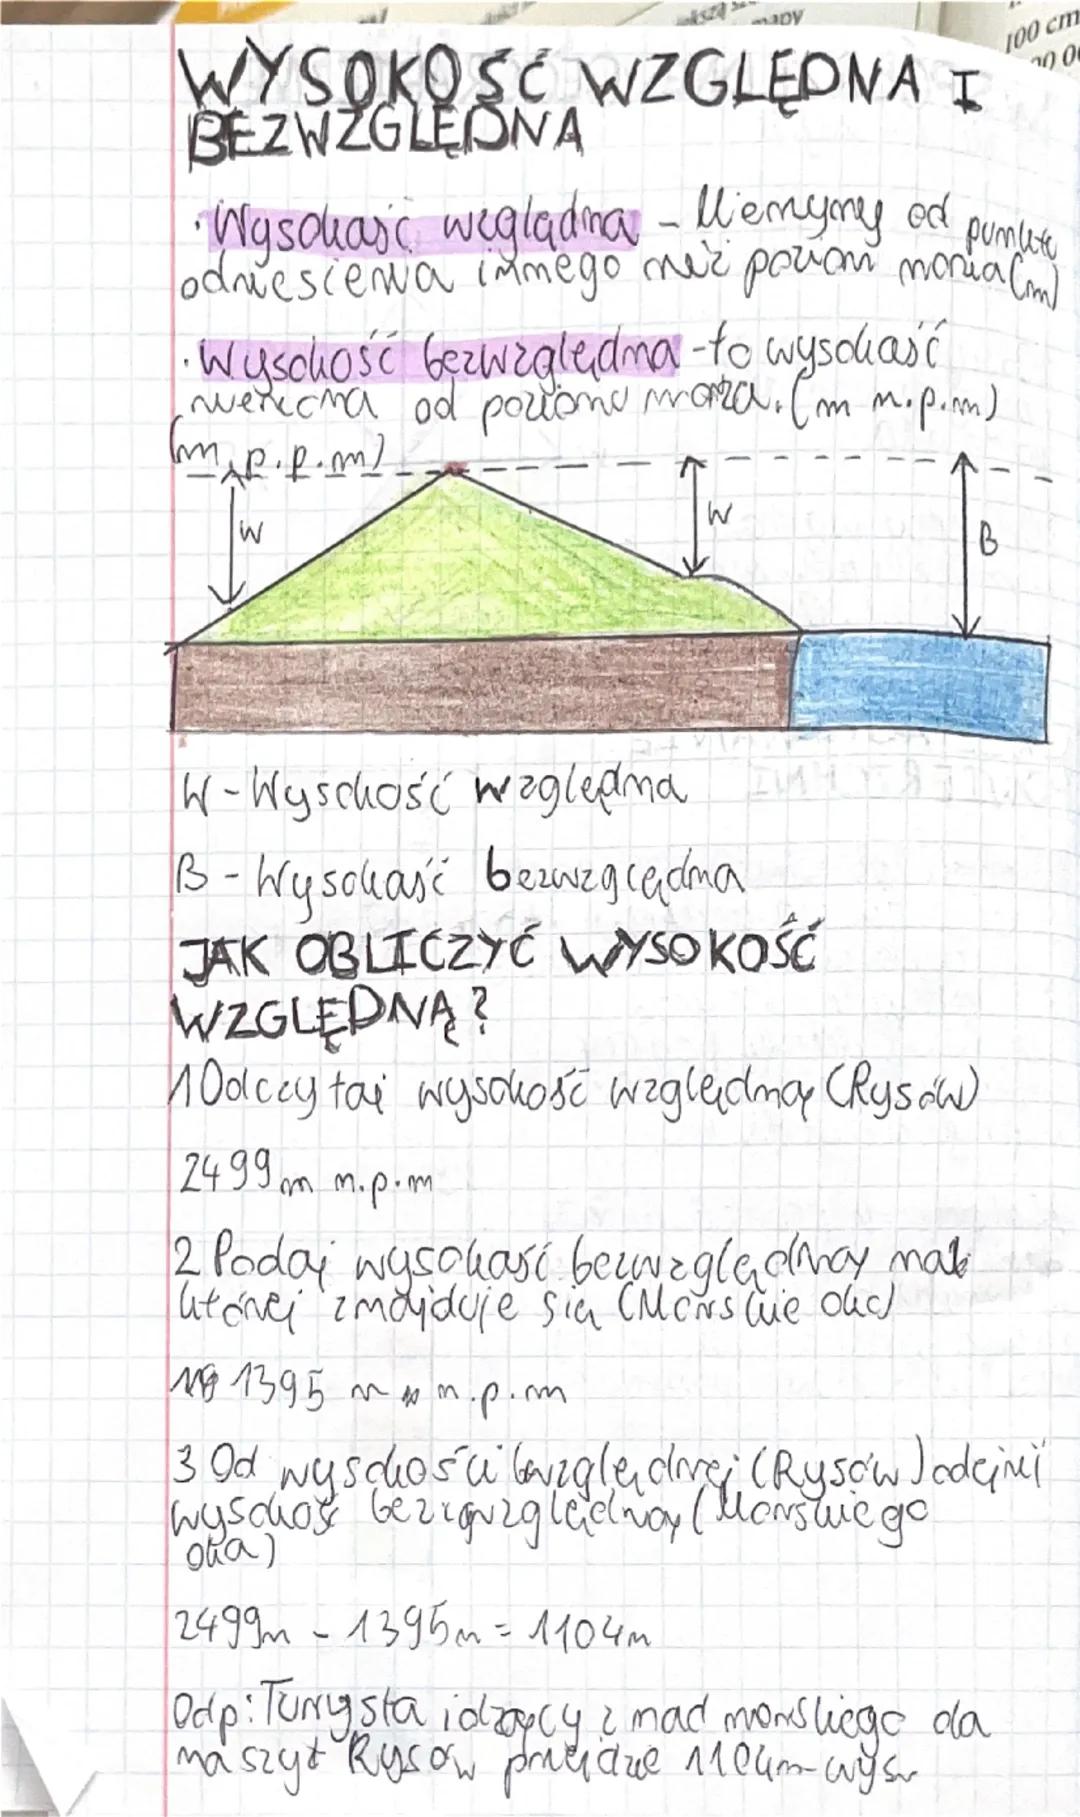 mapy
100 cm
WYSOKOŚĆ WZGLĘDNA I
BEZWZGLĘDNA
· Wysokość względna - Mierzymy od punktu
odniesienia innego niż poziom morza (m)
· Wysokość bezwzględna - to wysokość
od poziomu morza. (m n.p.m)
(m p.p.m)
W
W
B
W - Wysokość względna
B - Wysokość bezwzględna
JAK OBLICZYĆ WYSOKOŚĆ
WZGLĘDNĄ?
1 Odczytaj wysokość względną (Rysów)
2499 m n.p.m
2 Podaj wysokość bezwzględnay
której znajduje się (Morskie oko)
1395 m n.p.m
3 Od wysokości bezwzględnej (Rysów) odejmij
wysokość bezwzględnay (Morskiego
oka)
2499m - 1395m = 1104m
Odp: Turysta idący z nad morskiego
na szyt Rysów przejdzie 1104m wys